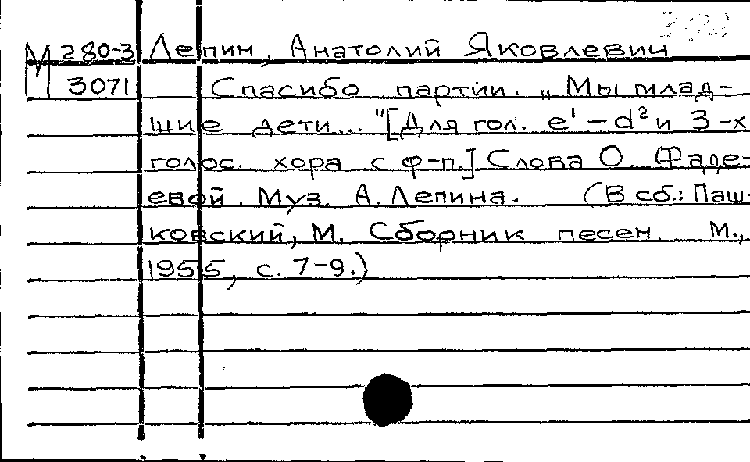 М 280-3 Лепин, Анатолий Яковлевич
3071 Спасибо партии. „Мы млад-
шие дети..."[Для гол. e¹-d² и 3-х
голос. хора с ф-п.] Слова О. Фаде-
евой. Муз. А. Лепина. (В сб.: Паш-
ковский, М. Сборник песен. М.,
1955, с. 7-9.)